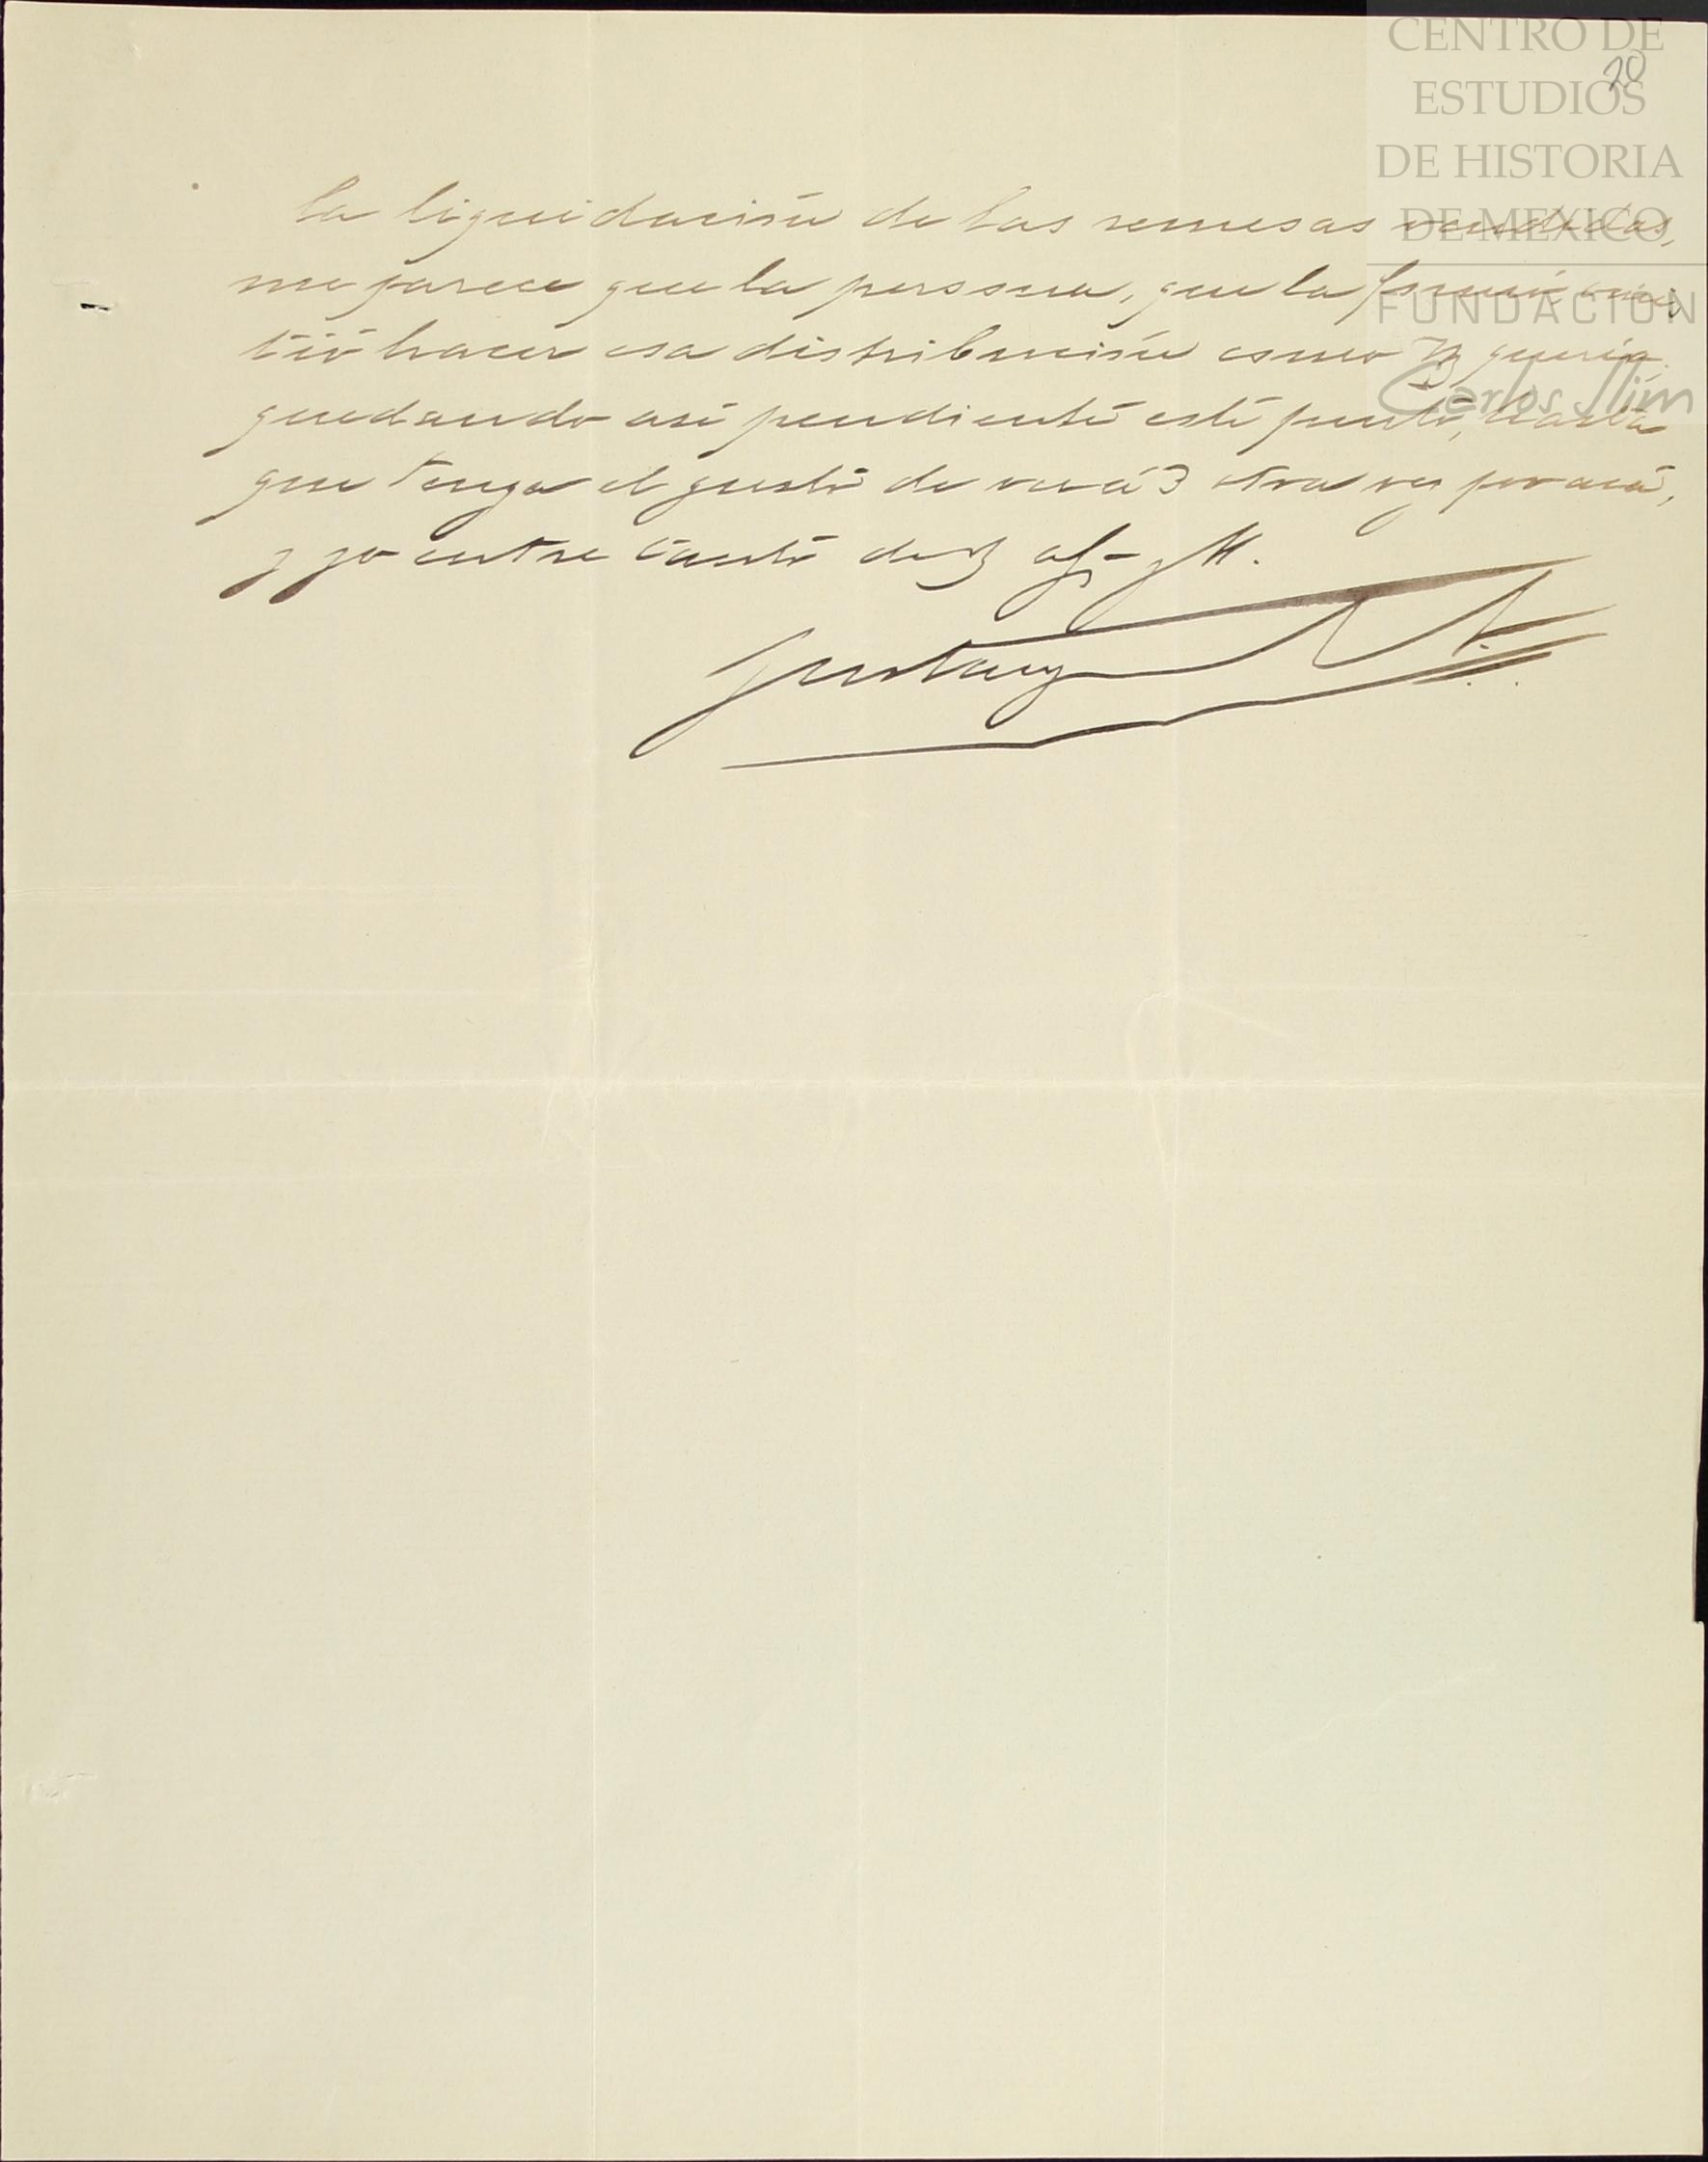 CENTRO DE
ESTUDIOS
DE HISTORIA
DE MEXICO
FUNDACIÓN
Carlos Slim
20
la liquidación de las remesas vendidas,
me parece que la persona, que la formó omi-
tió hacer esa distribución como V quería,
quedando así pendiente este punto, hasta
que tenga el gusto de verá V otra vez por acá,
y yo entre tanto de V af y